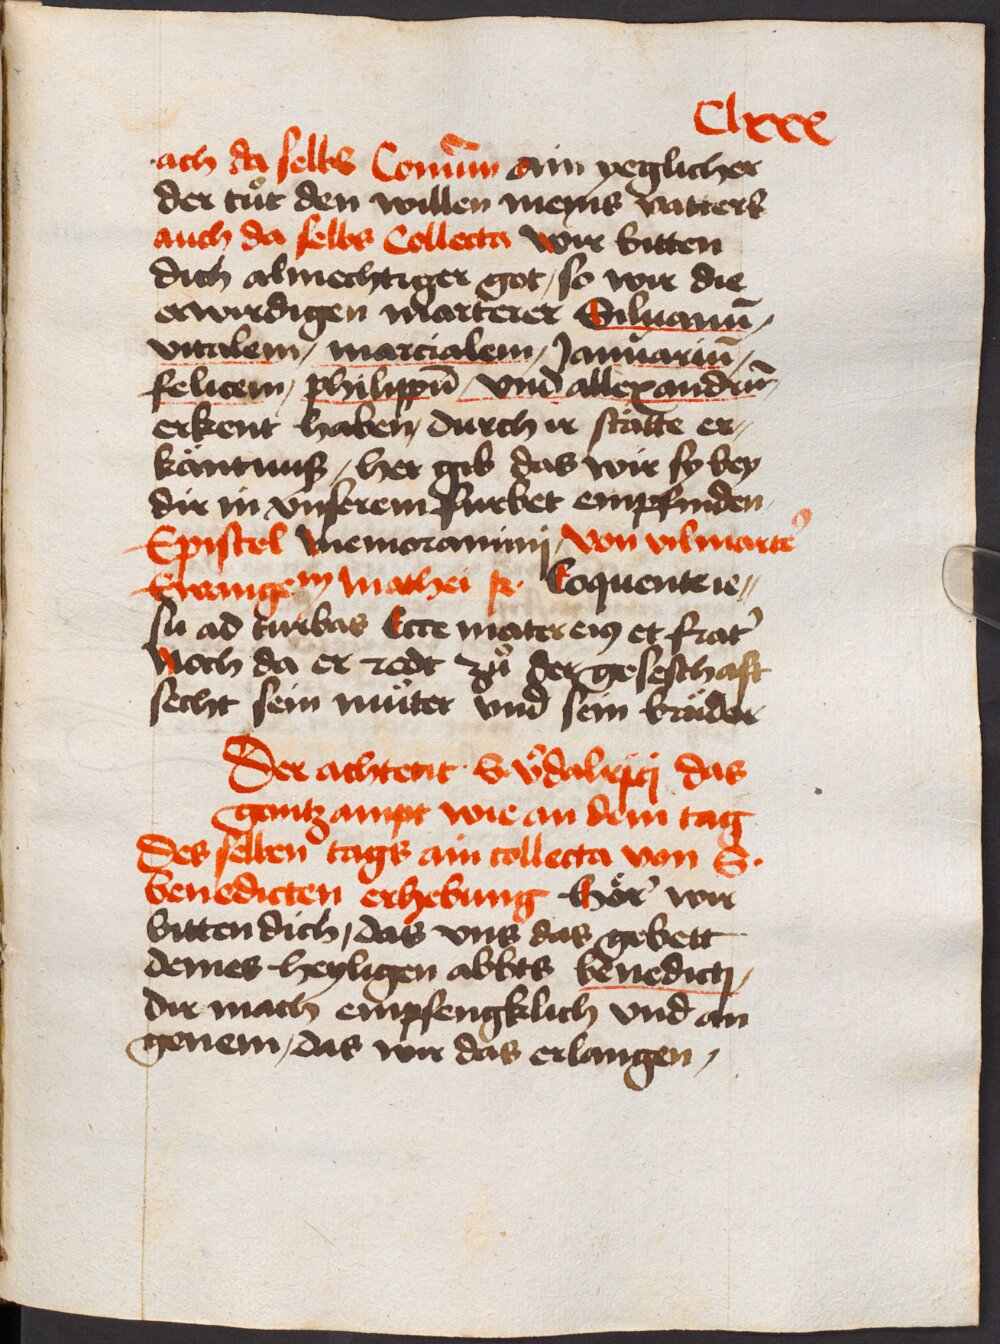 Clxxx
ach da selbs Comūm ain yeglicher
der tůt den willen meins vatters
auch da selbs Collecta Wir bitten
dich almechtiger got / so wir die
erwirdigen marterer Siluanū /
vitalem / marcialem / Januariū /
felicem / philippū / vnd allexandrū
erkent haben / durch ir stätte er //
käntnuß / her gib das wir sy bey
dir in vnserem furbet empfinden
Epistel Memoramini / von vil marter
Ewangem mathei xij. Loquente ie //
su ad turbas Ecce mater eius et fratr
Noch da er redt zů der geselschaft
secht sein můter vnd sein brůder
Der achtent S vdalrici das
gantz ampt wie an dem tag
Des selben tags ain collecta von S.
benedicten erhebung Hör wir
bitten dich / das vns das gebett
deines heyligen abbts benedicti /
dir mach empfengklich vnd an
genem / das wir das erlangen /